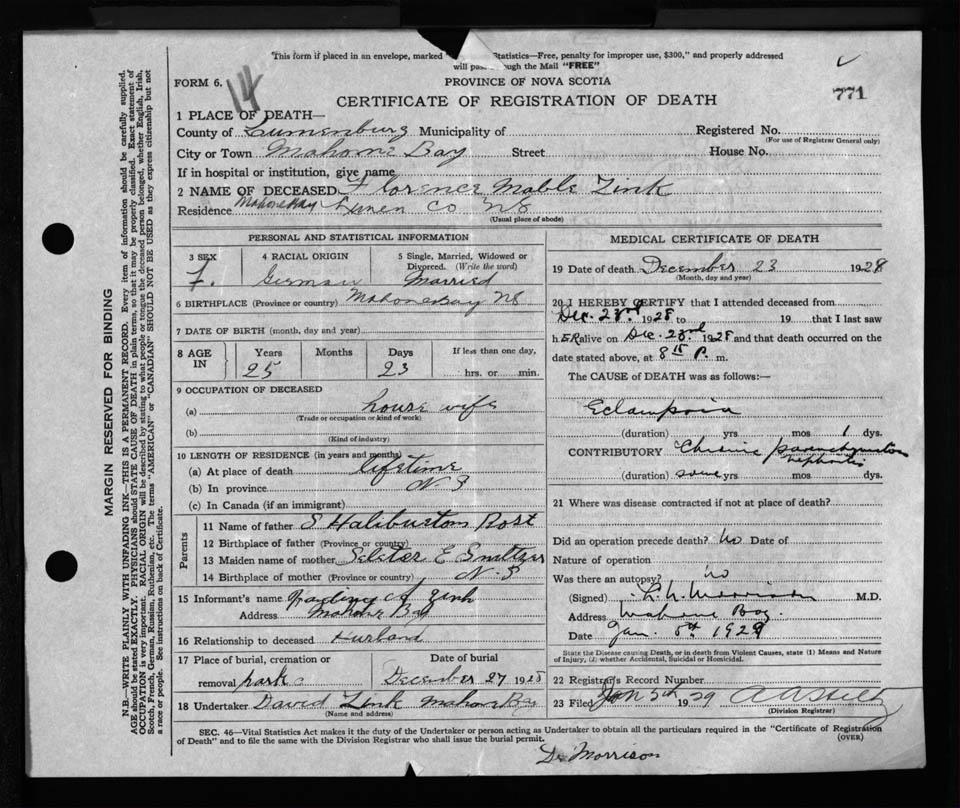 "This form if placed in an envelope, marked Statistics—Free, penalty for improper use, $300," and properly addressed
will pass through the Mail "FREE"
FORM 6. 14
PROVINCE OF NOVA SCOTIA
771
CERTIFICATE OF REGISTRATION OF DEATH
1 PLACE OF DEATH—
County of Lunenburg Municipality of Registered No.
(For use of Registrar General only)
City or Town Mahone Bay Street House No.
If in hospital or institution, give name
2 NAME OF DECEASED Florence Mable Zink
Residence Mahone Bay Lunen Co NS
(Usual place of abode)
PERSONAL AND STATISTICAL INFORMATION
3 SEX 4 RACIAL ORIGIN 5 Single, Married, Widowed or
Divorced. (Write the word)
F. German Married
6 BIRTHPLACE (Province or country) Mahone Bay NS
7 DATE OF BIRTH (month, day and year)
8 AGE IN Years Months Days If less than one day,
25 23 hrs. or min.
9 OCCUPATION OF DECEASED
(a) house wife
(Trade or occupation or kind of work)
(b)
(Kind of industry)
10 LENGTH OF RESIDENCE (in years and months)
(a) At place of death lifetime
(b) In province N S
(c) In Canada (if an immigrant)
Parents
11 Name of father S Haliburton
12 Birthplace of father (Province or country)
13 Maiden name of mother E
14 Birthplace of mother (Province or country) N S
15 Informant's name Zink
Address Mahone Bay
16 Relationship to deceased Husband
17 Place of burial, cremation or Date of burial
removal park December 27 1928
18 Undertaker David Zink Mahone Bay
(Name and address)
MEDICAL CERTIFICATE OF DEATH
19 Date of death December 23 1928
(Month, day and year)
20 I HEREBY CERTIFY that I attended deceased from
Dec. 23rd 1928 to 19 that I last saw
h ER alive on Dec. 23rd 1928 and that death occurred on the
date stated above, at 8 P. m.
The CAUSE of DEATH was as follows:—
Eclampsia
(duration) yrs. mos 1 dys.
CONTRIBUTORY Chronic parenchymatous
nephritis
(duration) some yrs mos dys.
21 Where was disease contracted if not at place of death?
Did an operation precede death? No Date of
Nature of operation
Was there an autopsy? no
(Signed) Morrison M.D.
Address Mahone Bay
Date Jan. 1929
State the Disease causing Death, or in death from Violent Causes, state (1) Means and Nature
of Injury, (2) whether Accidental, Suicidal or Homicidal.
22 Registrar's Record Number
23 Filed Jan 5th 1929
(Division Registrar)
SEC. 46—Vital Statistics Act makes it duty of the Undertaker or person acting as Undertaker to obtain all the particulars required in the "Certificate of Registration
of Death" and to file the same with the Division Registrar who shall issue the burial permit.
(OVER)
Dr Morrison
MARGIN RESERVED FOR BINDING
N.B.—WRITE PLAINLY WITH UNFADING INK—THIS IS A PERMANENT RECORD. Every item of information should be carefully supplied.
AGE should be stated EXACTLY. PHYSICIANS should STATE CAUSE OF DEATH in plain terms, so that it may be properly classified. Exact statement of
OCCUPATION is very important. RACIAL ORIGIN will be described by stating to what people or tongue the deceased person belonged, whether English, Irish,
Scotch, French, German, Russian, Ruthenian, etc. The terms "AMERICAN" or "CANADIAN" SHOULD NOT BE USED as they express citizenship but not
a race or people. See instructions on back of Certificate.